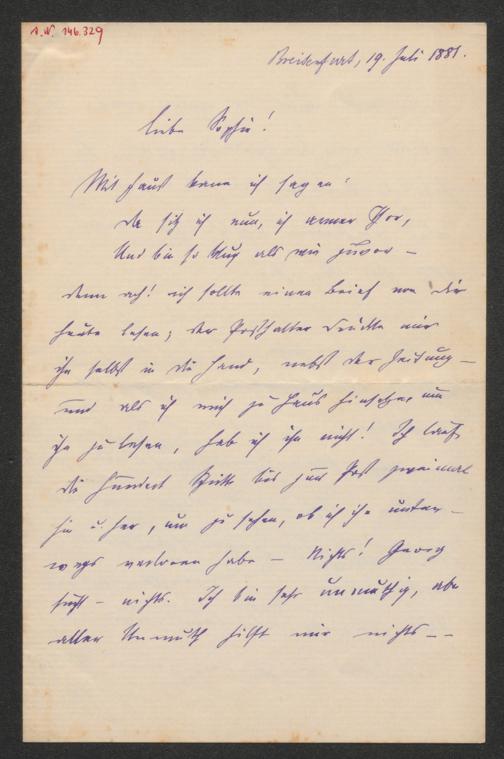 A.N. 146.329
Breitenfurt, 19. Juli 1881.
Liebe Sophie!
Mit Faust kann ich sagen:
Da sitz ich nun, ich armer Thor,
Und bin so klug als wie zuvor –
denn ach! ich sollte einen Brief von Dir
heute lesen; der Posthalter drückte mir
ihn selbst in die Hand, nebst der Zeitung –
und als ich mich zu Haus hinsetze, um
ihn zu lesen, hab ich ihn nicht! Ich lauf
die hundert Schritt bis zur Post zweimal
hin u. her, um zu sehen, ob ich ihn unter-
wegs verloren habe – Nichts! Georg
sucht – nichts. Ich bin sehr unmuthig, aber
aller Unmuth hilft mir nichts – –